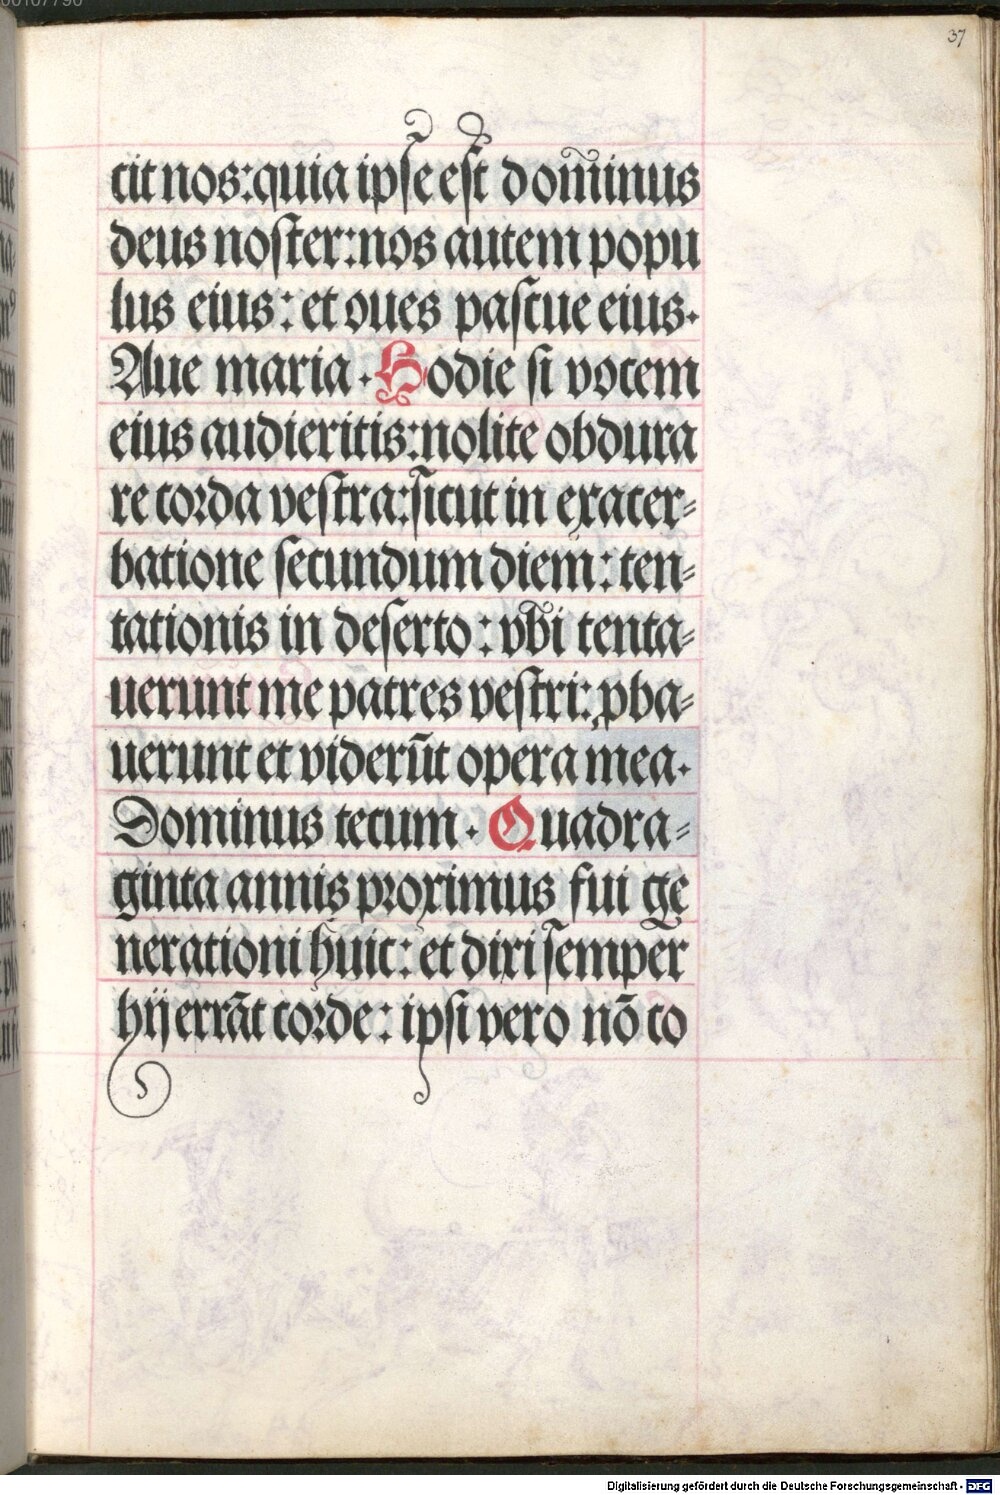 37
cit nos: quia ipse est dom̄inus
deus noster: nos autem popu
lus eius: et oues pascue eius.
Aue maria. Hodie si vocem
eius audieritis: nolite obdura
re corda vestra: sicut in exacer-
batione secundum diem: ten-
tationis in deserto: vbi tenta-
uerunt me patres vestri: ꝓba-
uerunt et viderūt opera mea.
Dominus tecum. Quadra-
ginta annis proximus fui ge
nerationi huic: et dixi semper
hij errāt corde: ipsi vero nō co
Digitalisierung gefördert durch die Deutsche Forschungsgemeinschaft - DFG